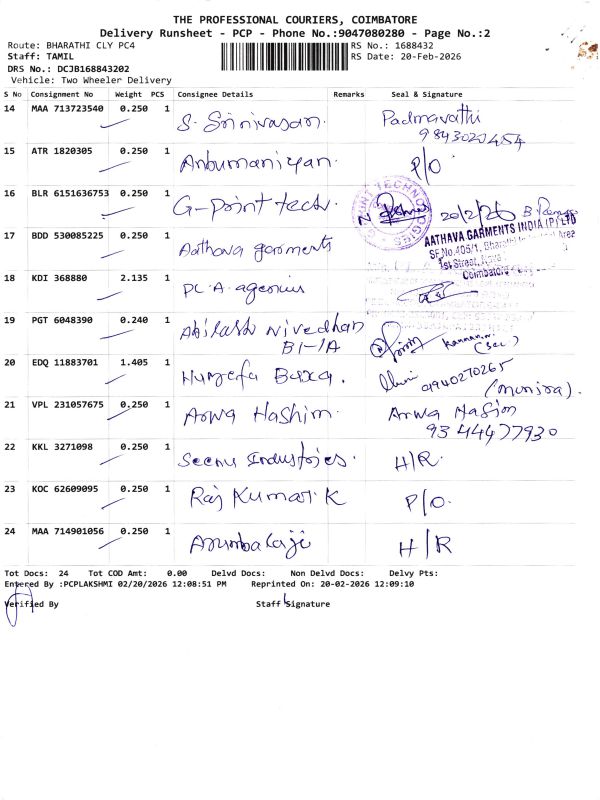 THE PROFESSIONAL COURIERS, COIMBATORE
Delivery Runsheet - PCP - Phone No.:9047080280 - Page No.:2
Route: BHARATHI CLY PC4
RS No.: 1688432
Staff: TAMIL
RS Date: 20-Feb-2026
DRS No.: DCJB168843202
Vehicle: Two Wheeler Delivery
S No Consignment No Weight PCS Consignee Details Remarks Seal & Signature
14 MAA 713723540 0.250 1 S. Srinivasan. Padmavathi
9843020454
15 ATR 1820305 0.250 1 Anbumaniyan. P/O
16 BLR 6151636753 0.250 1 G-Point tech. 20/2/26
17 BDD 530085225 0.250 1 Aathava garments
AATHAVA GARMENTS INDIA (P) LTD
SF.No.405/1, Bharathi Area
1st Street,
Coimbatore
18 KDI 368880 2.135 1 P.C.A. agencies
19 PGT 6048390 0.240 1 Abilash Nivedhan
B1-1A
(sec)
20 EDQ 11883701 1.405 1 Huzefa Baxa. 01940270265
(munira).
21 VPL 231057675 0.250 1 Arwa Hashim. Arwa Hasim
9344477930
22 KKL 3271098 0.250 1 Seenu Industries. H/R.
23 KOC 62609095 0.250 1 Raj Kumar. K P/O.
24 MAA 714901056 0.250 1 Arunbalaji H/R
Tot Docs: 24 Tot COD Amt: 0.00 Delvd Docs: Non Delvd Docs: Delvy Pts:
Entered By :PCPLAKSHMI 02/20/2026 12:08:51 PM Reprinted On: 20-02-2026 12:09:10
Verified By Staff Signature